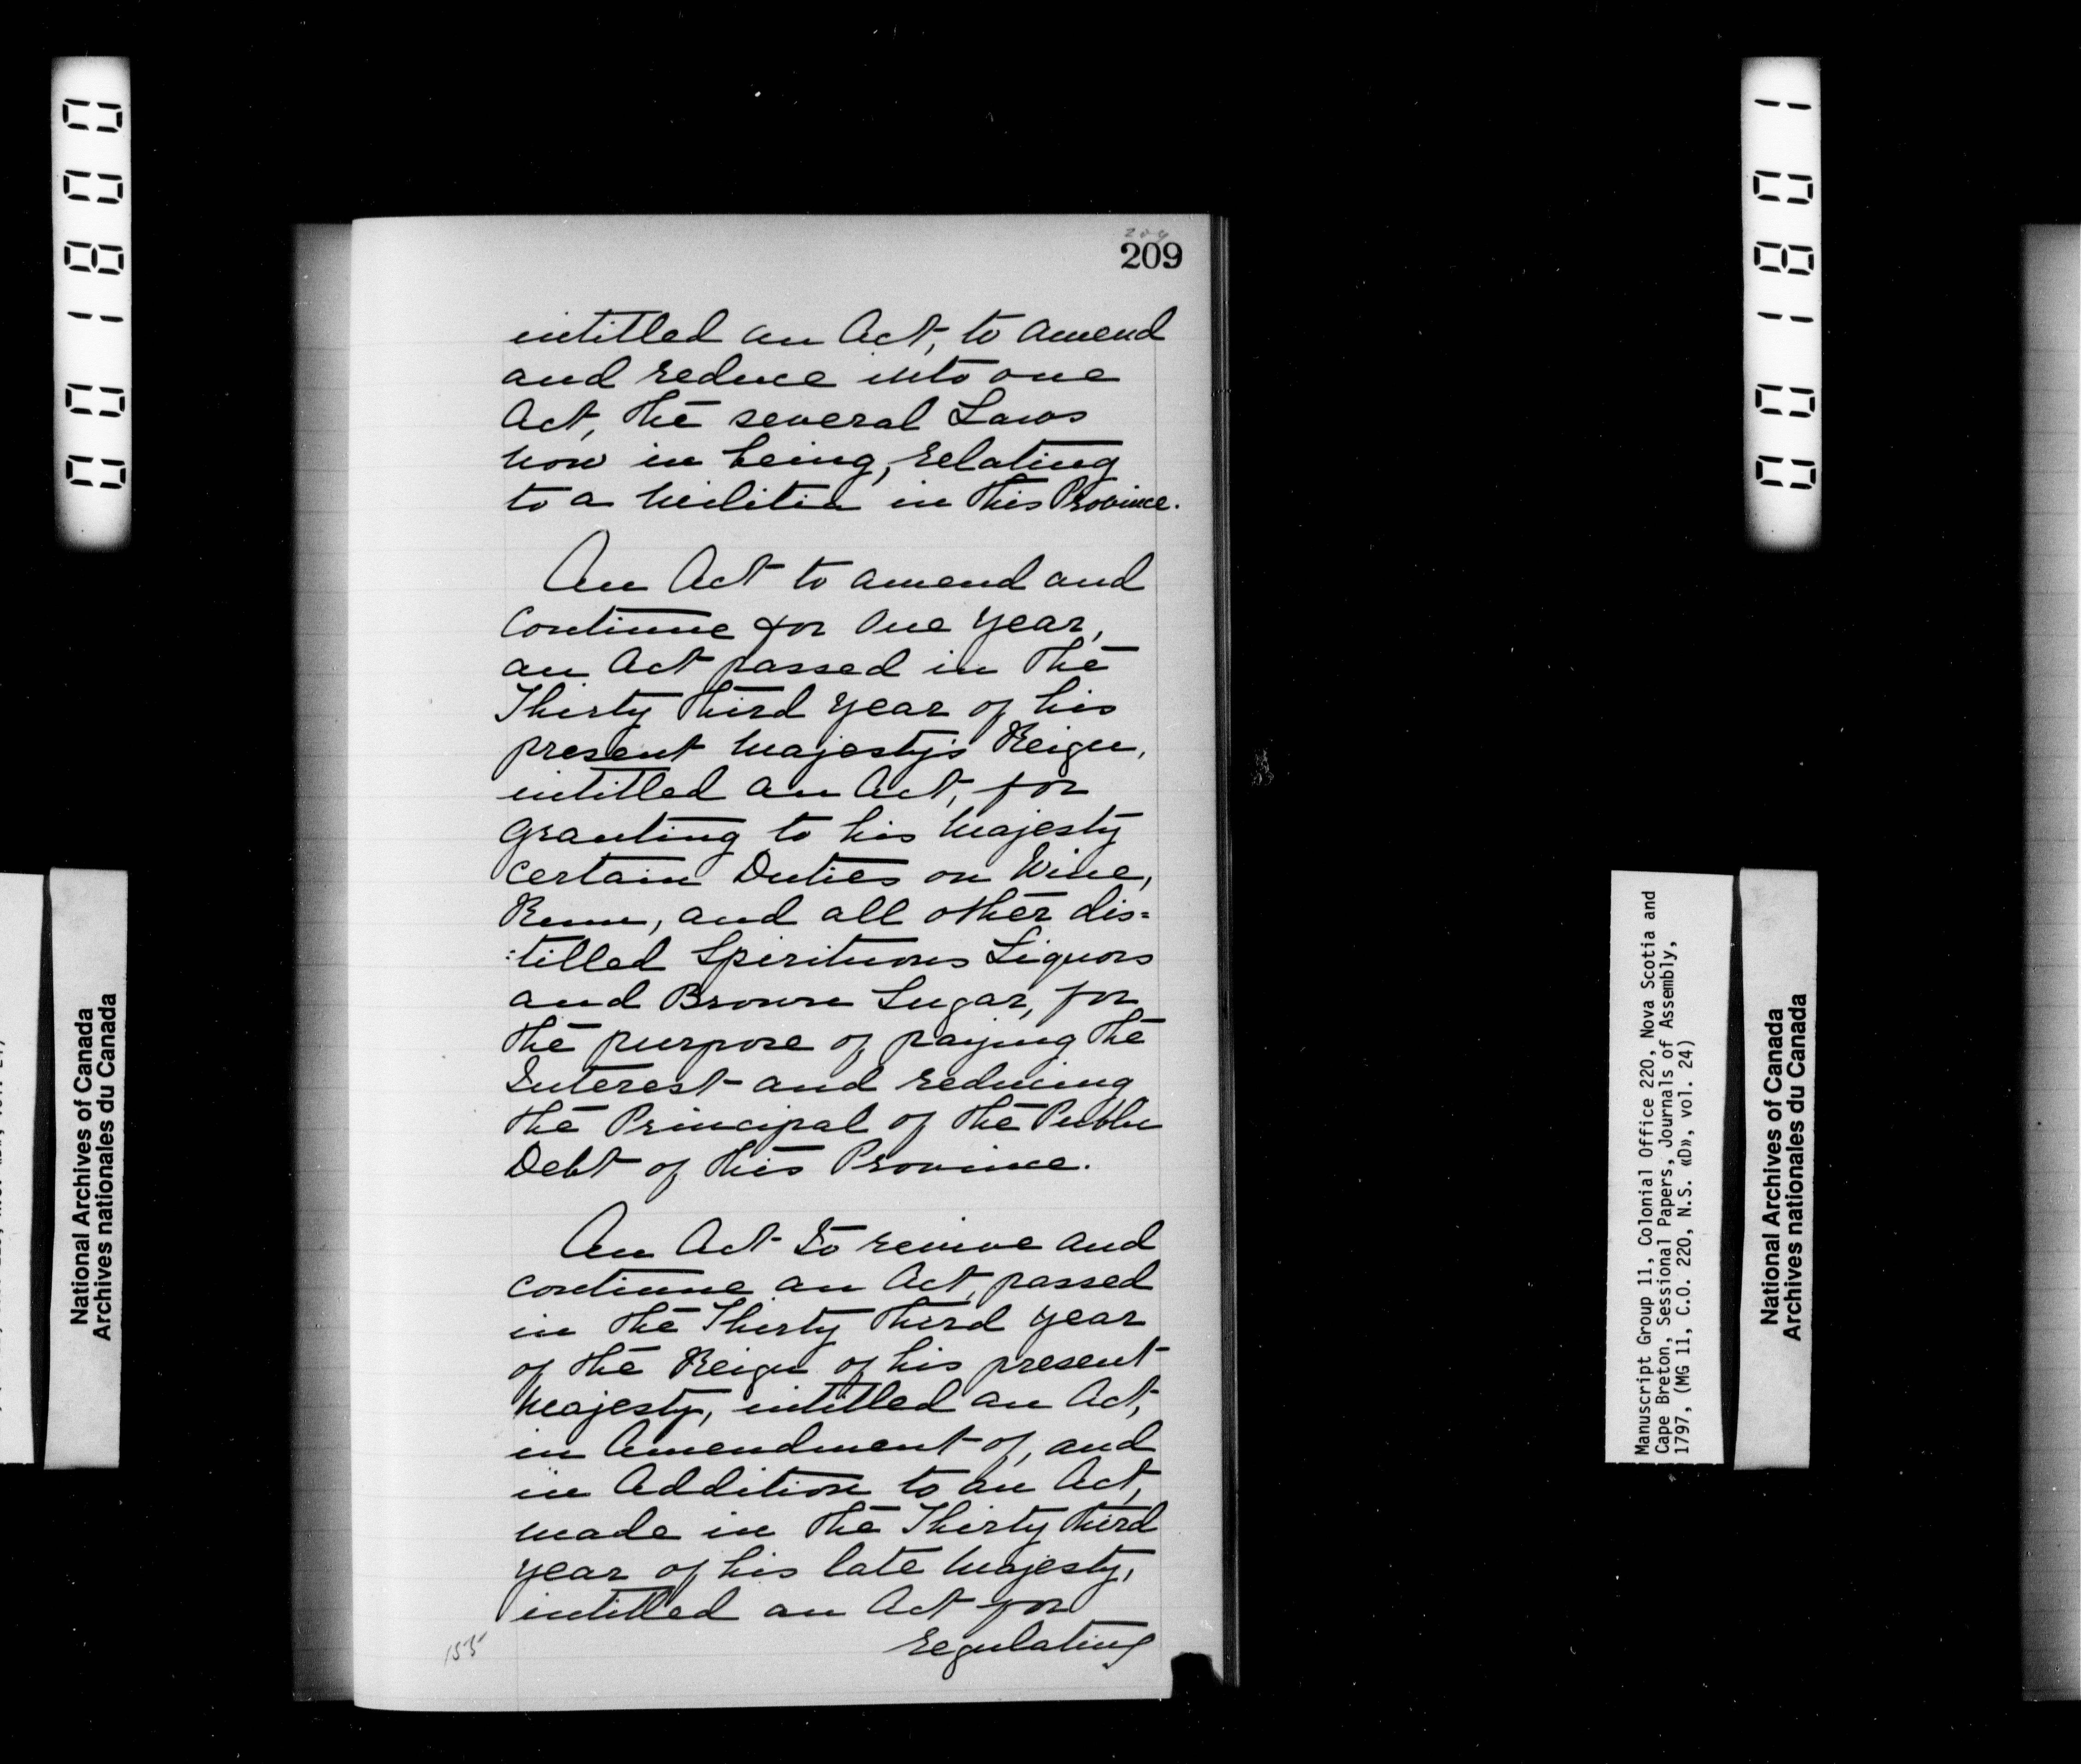 001800
001801
204
209
intitled an Act, to amend
and reduce into one
Act, the several Laws
now in being, relating
to a Militia in this Province.
An Act to amend and
Continue for One Year,
an Act passed in the
Thirty third year of his
present Majesty's Reign,
intitled an Act, for
Granting to his Majesty
certain Duties on Wine,
Rum, and all other dis=
:tilled Spirituous Liquors
and Brown Sugar, for
the purpose of paying the
Interest and reducing
the Principal of the Public
Debt of this Province.
An Act to revive and
continue an Act, passed
in the Thirty third year
of the Reign of his present
Majesty, intitled an Act,
in Amendment of, and
in Addition to an Act,
made in the Thirty third
year of his late Majesty,
intitled an Act for
regulating
155
National Archives of Canada
Archives nationales du Canada
Manuscript Group 11, Colonial Office 220, Nova Scotia and
Cape Breton, Sessional Papers, Journals of Assembly,
1797, (MG 11, C.O. 220, N.S. «D», vol. 24)
National Archives of Canada
Archives nationales du Canada